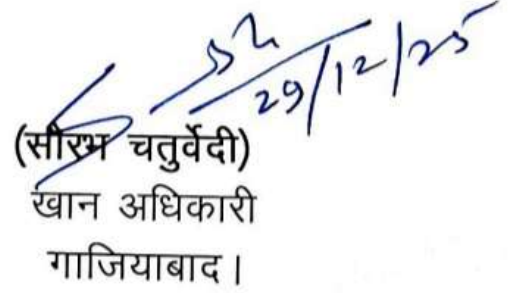 29/12/25
(सौरभ चतुर्वेदी)
खान अधिकारी
गाजियाबाद।